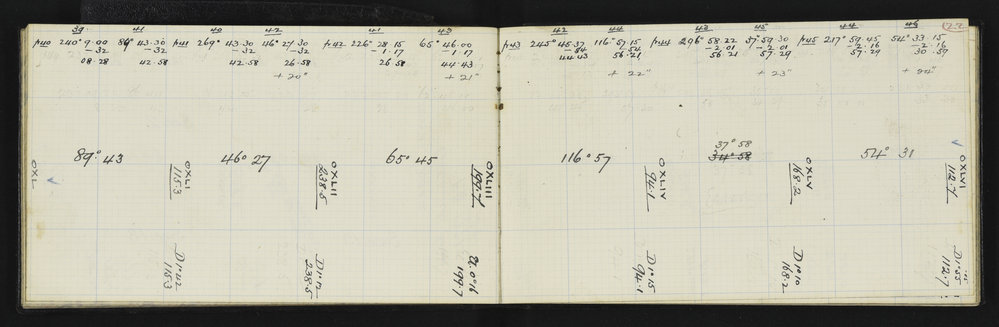 39 41 40 42 41 43
p40 240° 9.00 89° 43.30 p41 269° 43.30 46° 27.30 p42 226° 28.15 65° 46.00
-32 -32 -32 -32 -1.17 -1.17
08.28 42.58 42.58 26.58 26.58 44.43
+20" +21"
89° 43 46° 27 65° 45
OXL
OXLI
115.3
OXLII
238.5
OXLIII
199.7
D1°42
115.3
D1°12
238.5
199.7
42 44 43 45 44 46 122
p43 245° 45.37 116° 57.15 p44 296° 58.22 37° 59.30 p45 217° 59.45 54° 33.15
-54 -54 -2.01 -2.01 -2.16 -2.16
44.43 56.21 56.21 57.29 57.29 30.59
+22" +23" +24"
37° 58
116° 57 34° 58 54° 31
OXLIV
94.1
OXLV
168.2
OXLVI
112.7
D1°15
94.1
D1°10
168.2
D1°55
112.7